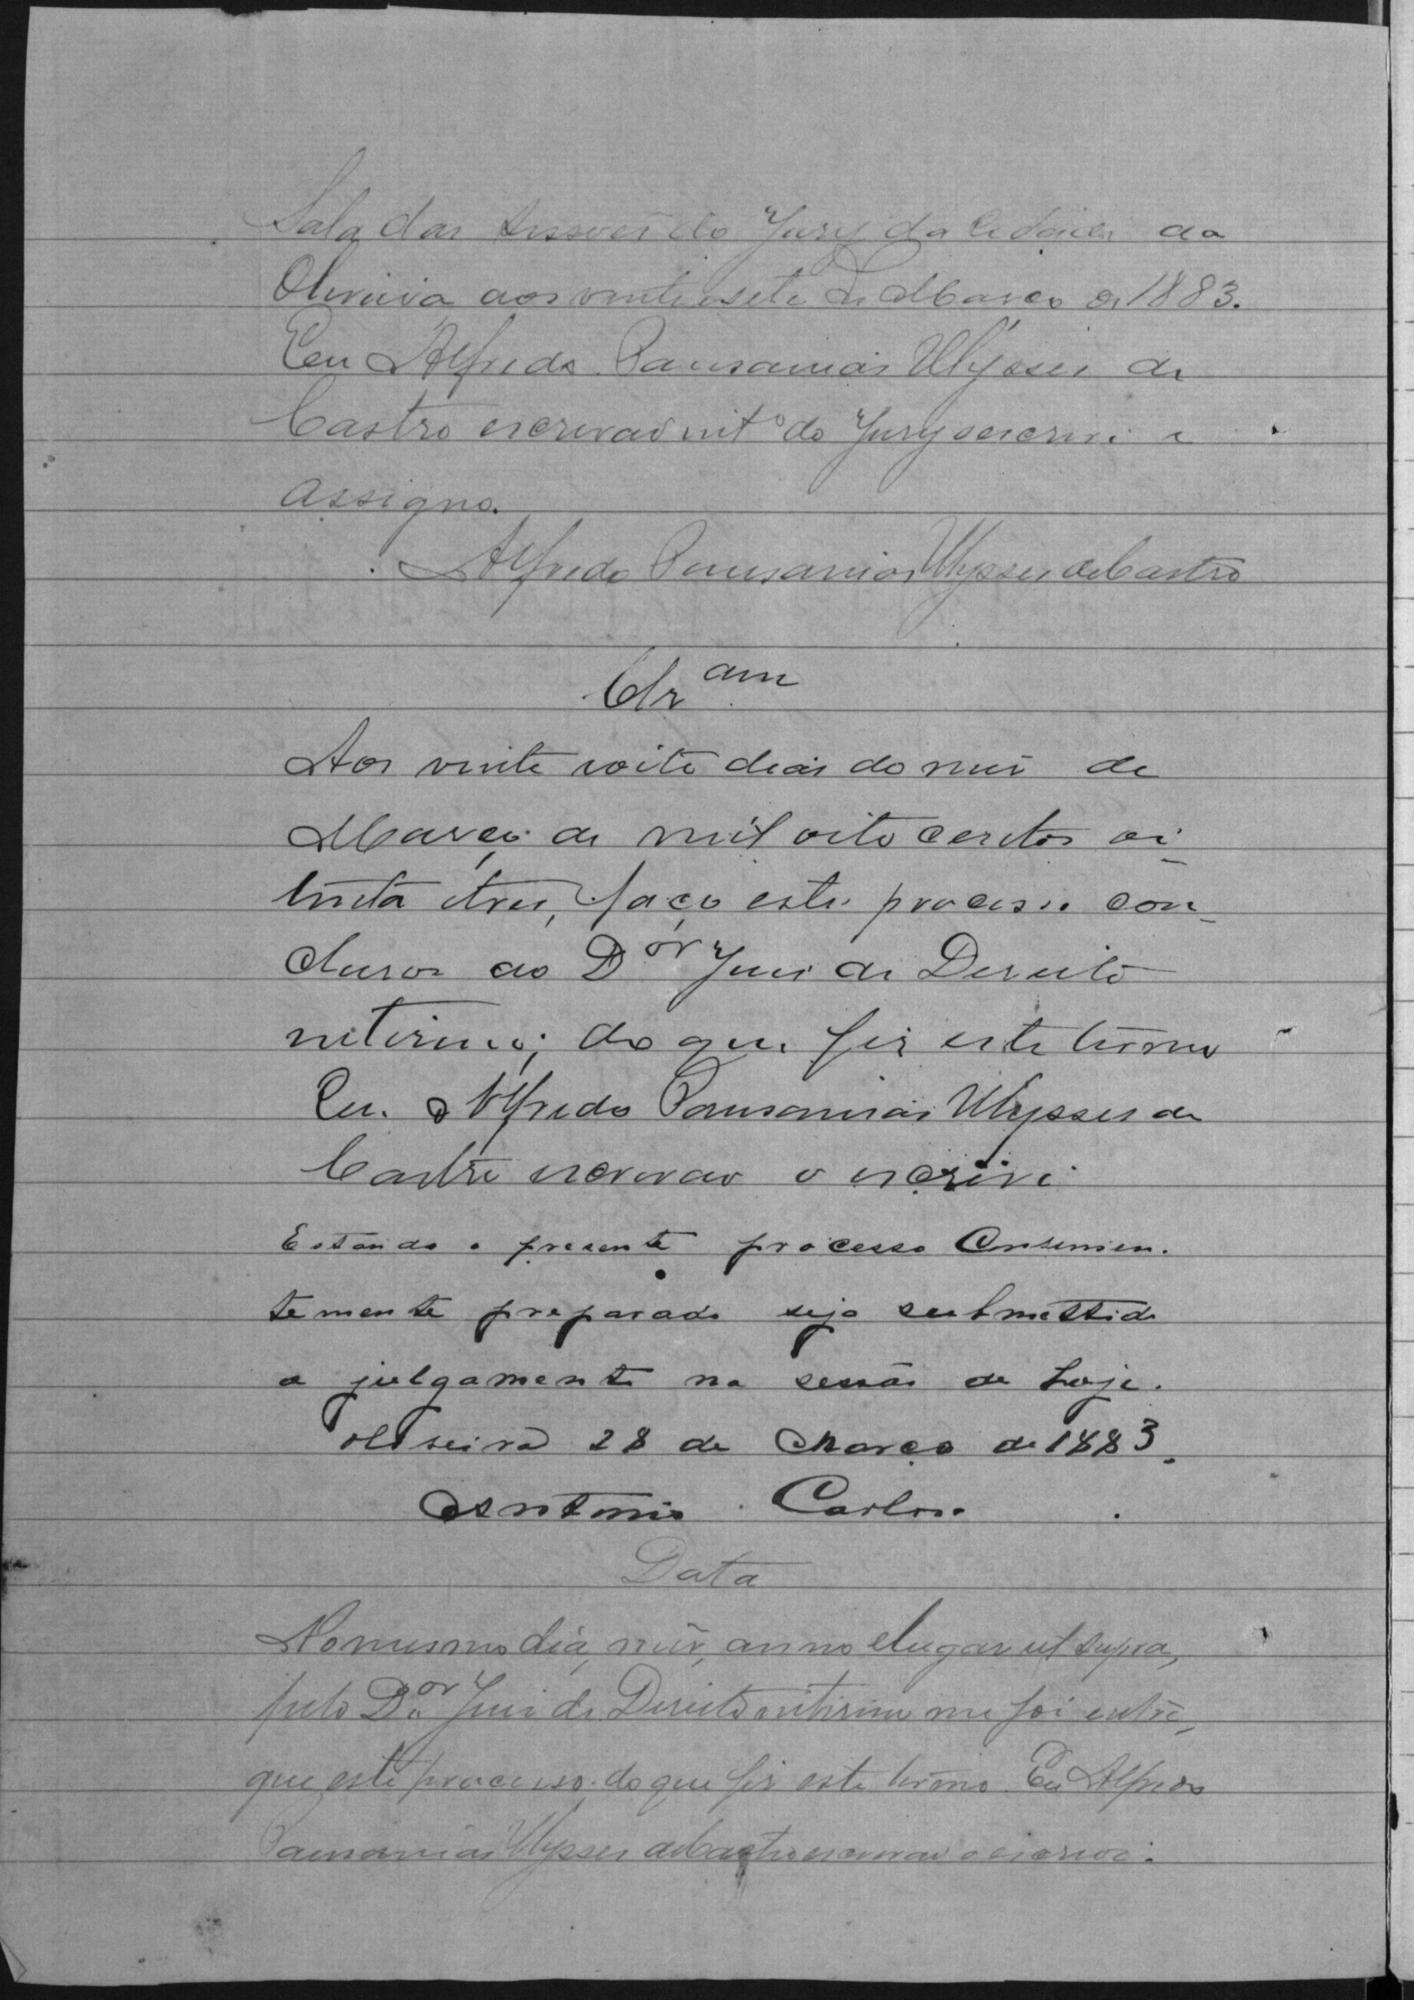 Sala das sessões do Jury da Cidade da
Oliveira aos vinte e sete de Março de 1883.
Eu Alfredo Pausanias Ulysses de
Castro escrivão int.º do Jury o escrevi e
assigno.
Alfredo Pausanias Ulysses de Castro
Clz.am
Aos vinte e oito dias do mez de
Março de mil oito centos oi-
tenta e tres, faço este processo con-
clusos ao Dor Juiz de Direito
interino; do que fiz este termo
Eu Alfredo Pausanias Ulysses de
Castro escrivão o escrivi
Estando o presente processo
temente preparado seja submettido
a julgamento na sessão de hoje.
Oliveira 28 de Março de 1883.
Antonio Carlos.
Data
No mesmo dia, mez, anno e lugar ut supra,
pelo Dor Juiz de Direito interino me foi entre-
gue este processo do que fiz este termo. Eu Alfredo
Pausanias Ulysses de Castro escrivão o escrevi.